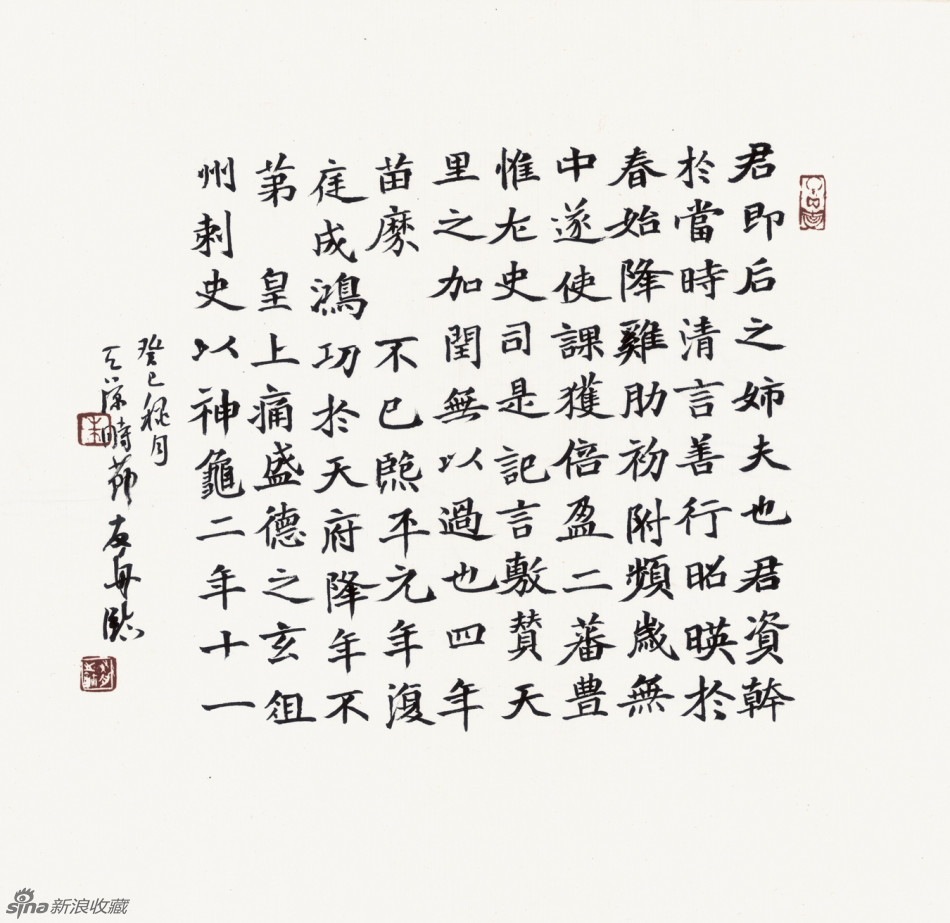 君即后之姉夫也君資幹
於當時清言善行昭暎於
春始降雞肋初附頻歲無
中遂使課獲倍盈二蕃豊
惟尢史司是記言敷贊天
里之加閏無以過也四年
苗麼不已熙平元年復
莛成鴻功於天府降年不
苐皇上痛盛德之玄徂
州刺史以神龜二年十一
癸巳秾月
時節友舟臨
sina新浪收藏